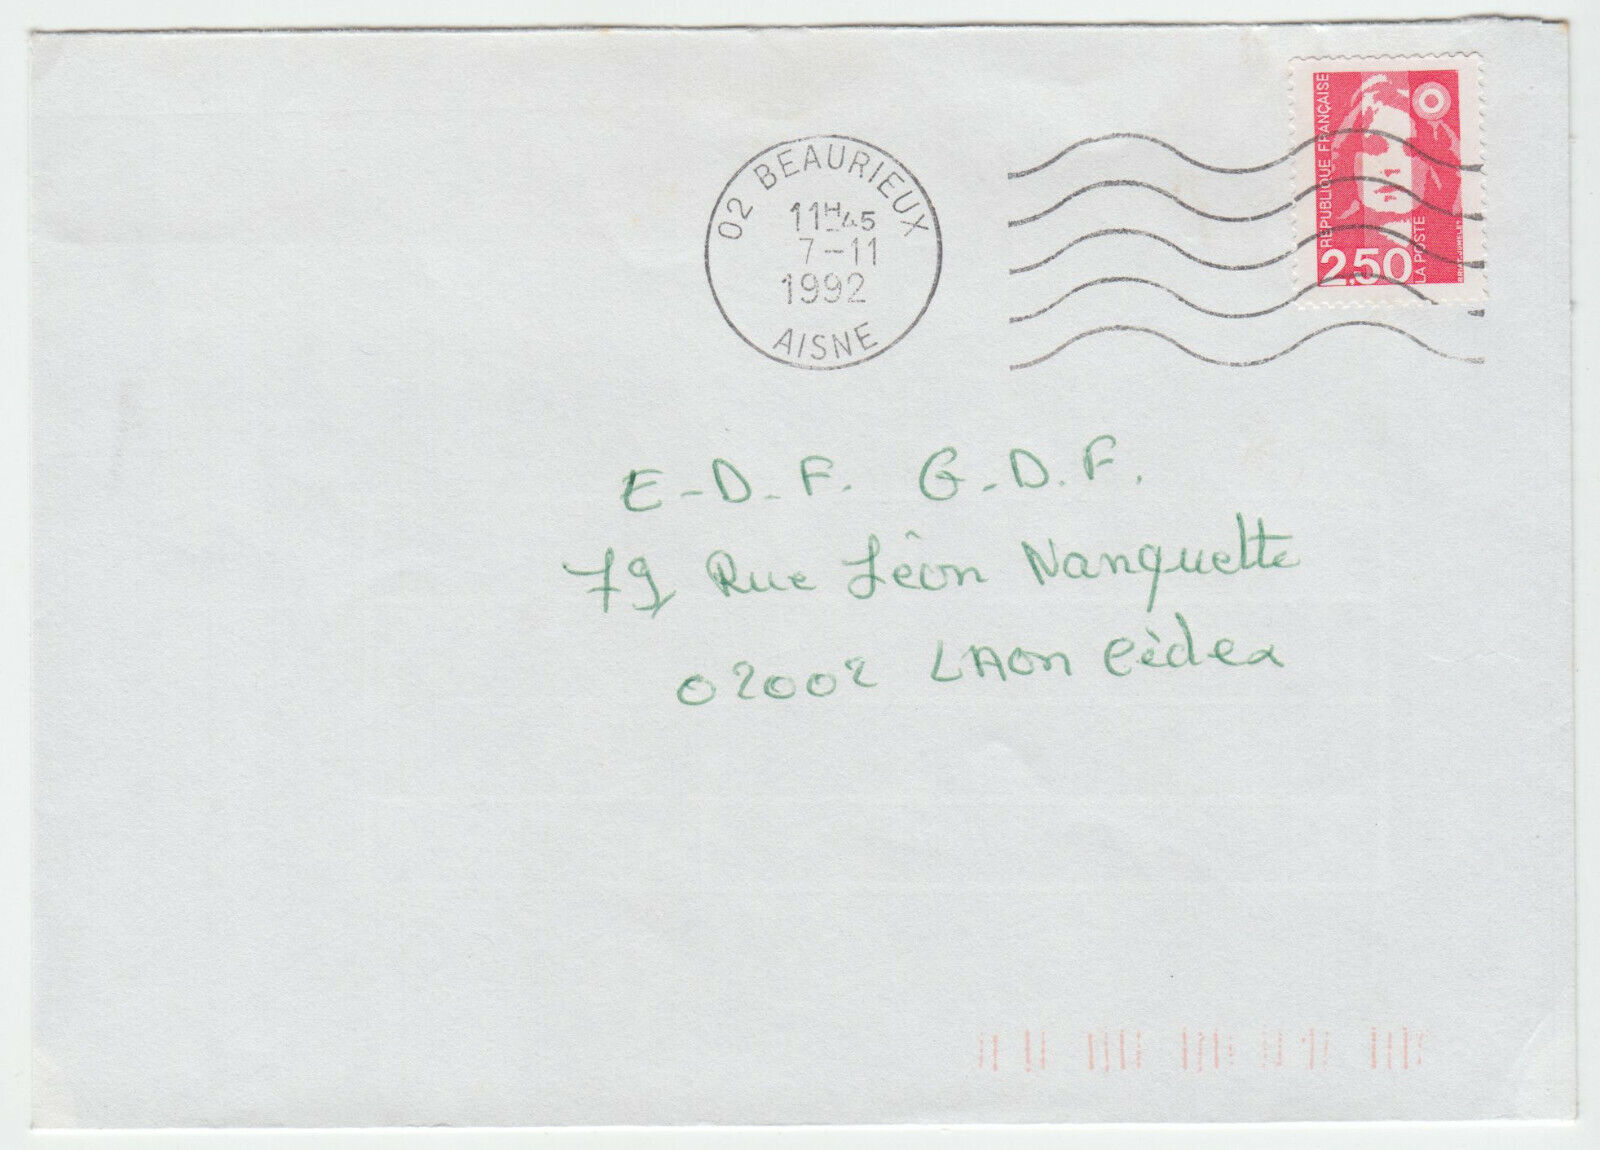 02 BEAURIEUX
11H45
7-11
1992
AISNE
REPUBLIQUE FRANÇAISE
2,50
LA POSTE
BRIAT-JUMELET
E-D-F. G-D.F.
79 Rue Lèon Nanquette
02002 LAON Cèdex